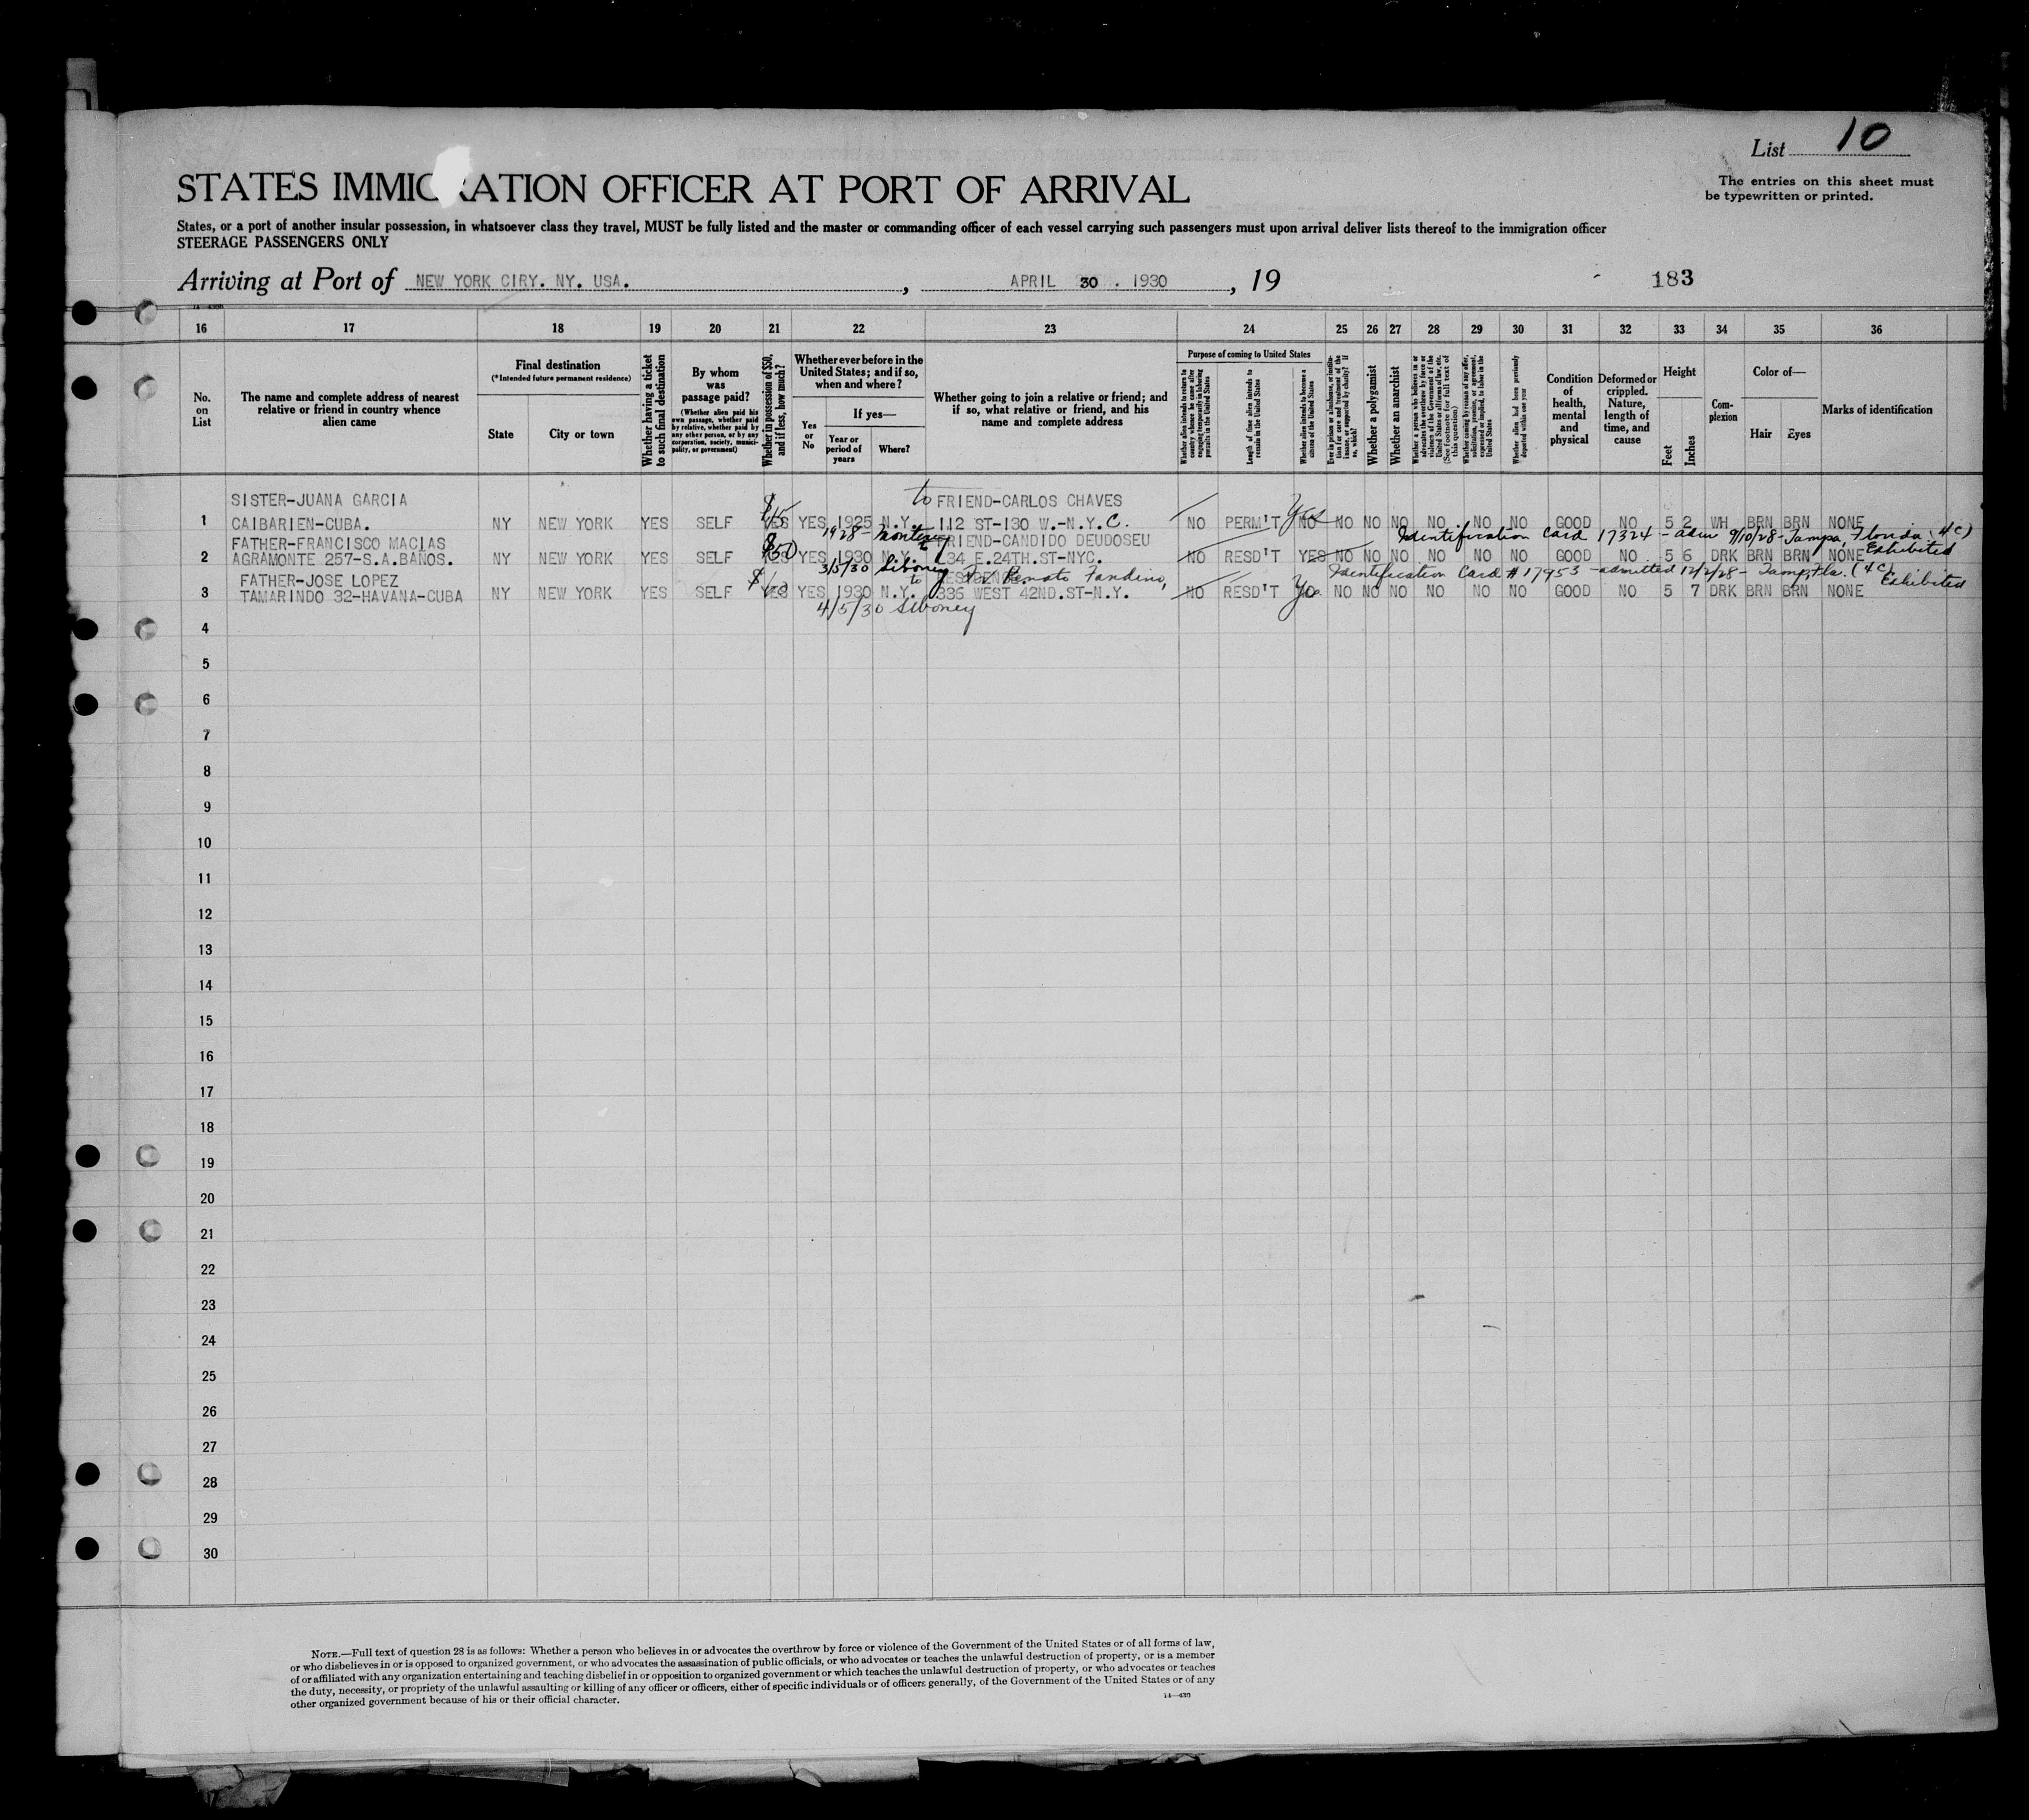 List 10
The entries on this sheet must
be typewritten or printed.
STATES IMMIGRATION OFFICER AT PORT OF ARRIVAL
States, or a port of another insular possession, in whatsoever class they travel, MUST be fully listed and the master or commanding officer of each vessel carrying such passengers must upon arrival deliver lists thereof to the immigration officer
STEERAGE PASSENGERS ONLY
Arriving at Port of NEW YORK CIRY. NY. USA. , APRIL 30 . 1930 , 19 183
16 17 18 19 20 21 22 23 24 25 26 27 28 29 30 31 32 33 34 35 36
No. on List
The name and complete address of nearest relative or friend in country whence alien came
Final destination
(*Intended future permanent residence)
State
City or town
Whether having a ticket to such final destination
By whom was passage paid?
(Whether alien paid his own passage, whether paid by relative, whether paid by any other person, or by any corporation, society, municipality, or government)
Whether in possession of $50, and if less, how much?
Whether ever before in the United States; and if so, when and where?
Yes or No
If yes—
Year or period of years
Where?
Whether going to join a relative or friend; and if so, what relative or friend, and his name and complete address
Purpose of coming to United States
Whether alien intends to return to country whence he came after engaging temporarily in laboring pursuits in the United States
Length of time alien intends to remain in the United States
Whether alien intends to become a citizen of the United States
Ever in prison or almshouse, or institution for care and treatment of the insane, or supported by charity? If so, which?
Whether a polygamist
Whether an anarchist
Whether a person who believes in or advocates the overthrow by force or violence of the Government of the United States or all forms of law, etc. (See footnote for full text of this question)
Whether coming by reason of any offer, solicitation, promise, or agreement, expressed or implied, to labor in the United States
Whether alien had been previously deported within one year
Condition of health, mental and physical
Deformed or crippled. Nature, length of time, and cause
Height
Feet
Inches
Complexion
Color of—
Hair
Eyes
Marks of identification
SISTER-JUANA GARCIA to FRIEND-CARLOS CHAVES
1 CAIBARIEN-CUBA. NY NEW YORK YES SELF YES $15 YES 1925 N.Y. 112 ST-130 W.-N.Y.C. NO PERM'T NO Yes NO NO NO NO NO NO GOOD NO 5 2 WH BRN BRN NONE
1928- Monterey Identification Card 17324 - adm 9/10/28 - Tampa, Florida (4c) Exhibited
FATHER-FRANCISCO MACIAS to FRIEND-CANDIDO DEUDOSEU
2 AGRAMONTE 257-S.A.BAÑOS. NY NEW YORK YES SELF YES $50 YES 1930 N.Y. 234 E.24TH.ST-NYC. NO RESD'T YES NO NO NO NO NO NO GOOD NO 5 6 DRK BRN BRN NONE
3/5/30 Siboney Identification Card #17953 - admitted 12/2/28 - Tampa, Fla. (4c) Exhibited
FATHER-JOSE LOPEZ to Renato Fandino,
3 TAMARINDO 32-HAVANA-CUBA NY NEW YORK YES SELF YES YES 1930 N.Y. 336 WEST 42ND.ST-N.Y. NO RESD'T Yes NO NO NO NO NO NO GOOD NO 5 7 DRK BRN BRN NONE
4/5/30 Siboney
4
5
6
7
8
9
10
11
12
13
14
15
16
17
18
19
20
21
22
23
24
25
26
27
28
29
30
NOTE.—Full text of question 28 is as follows: Whether a person who believes in or advocates the overthrow by force or violence of the Government of the United States or of all forms of law,
or who disbelieves in or is opposed to organized government, or who advocates the assassination of public officials, or who advocates or teaches the unlawful destruction of property, or is a member
of or affiliated with any organization entertaining and teaching disbelief in or opposition to organized government or which teaches the unlawful destruction of property, or who advocates or teaches
the duty, necessity, or propriety of the unlawful assaulting or killing of any officer or officers, either of specific individuals or of officers generally, of the Government of the United States or of any
other organized government because of his or their official character.
14—430